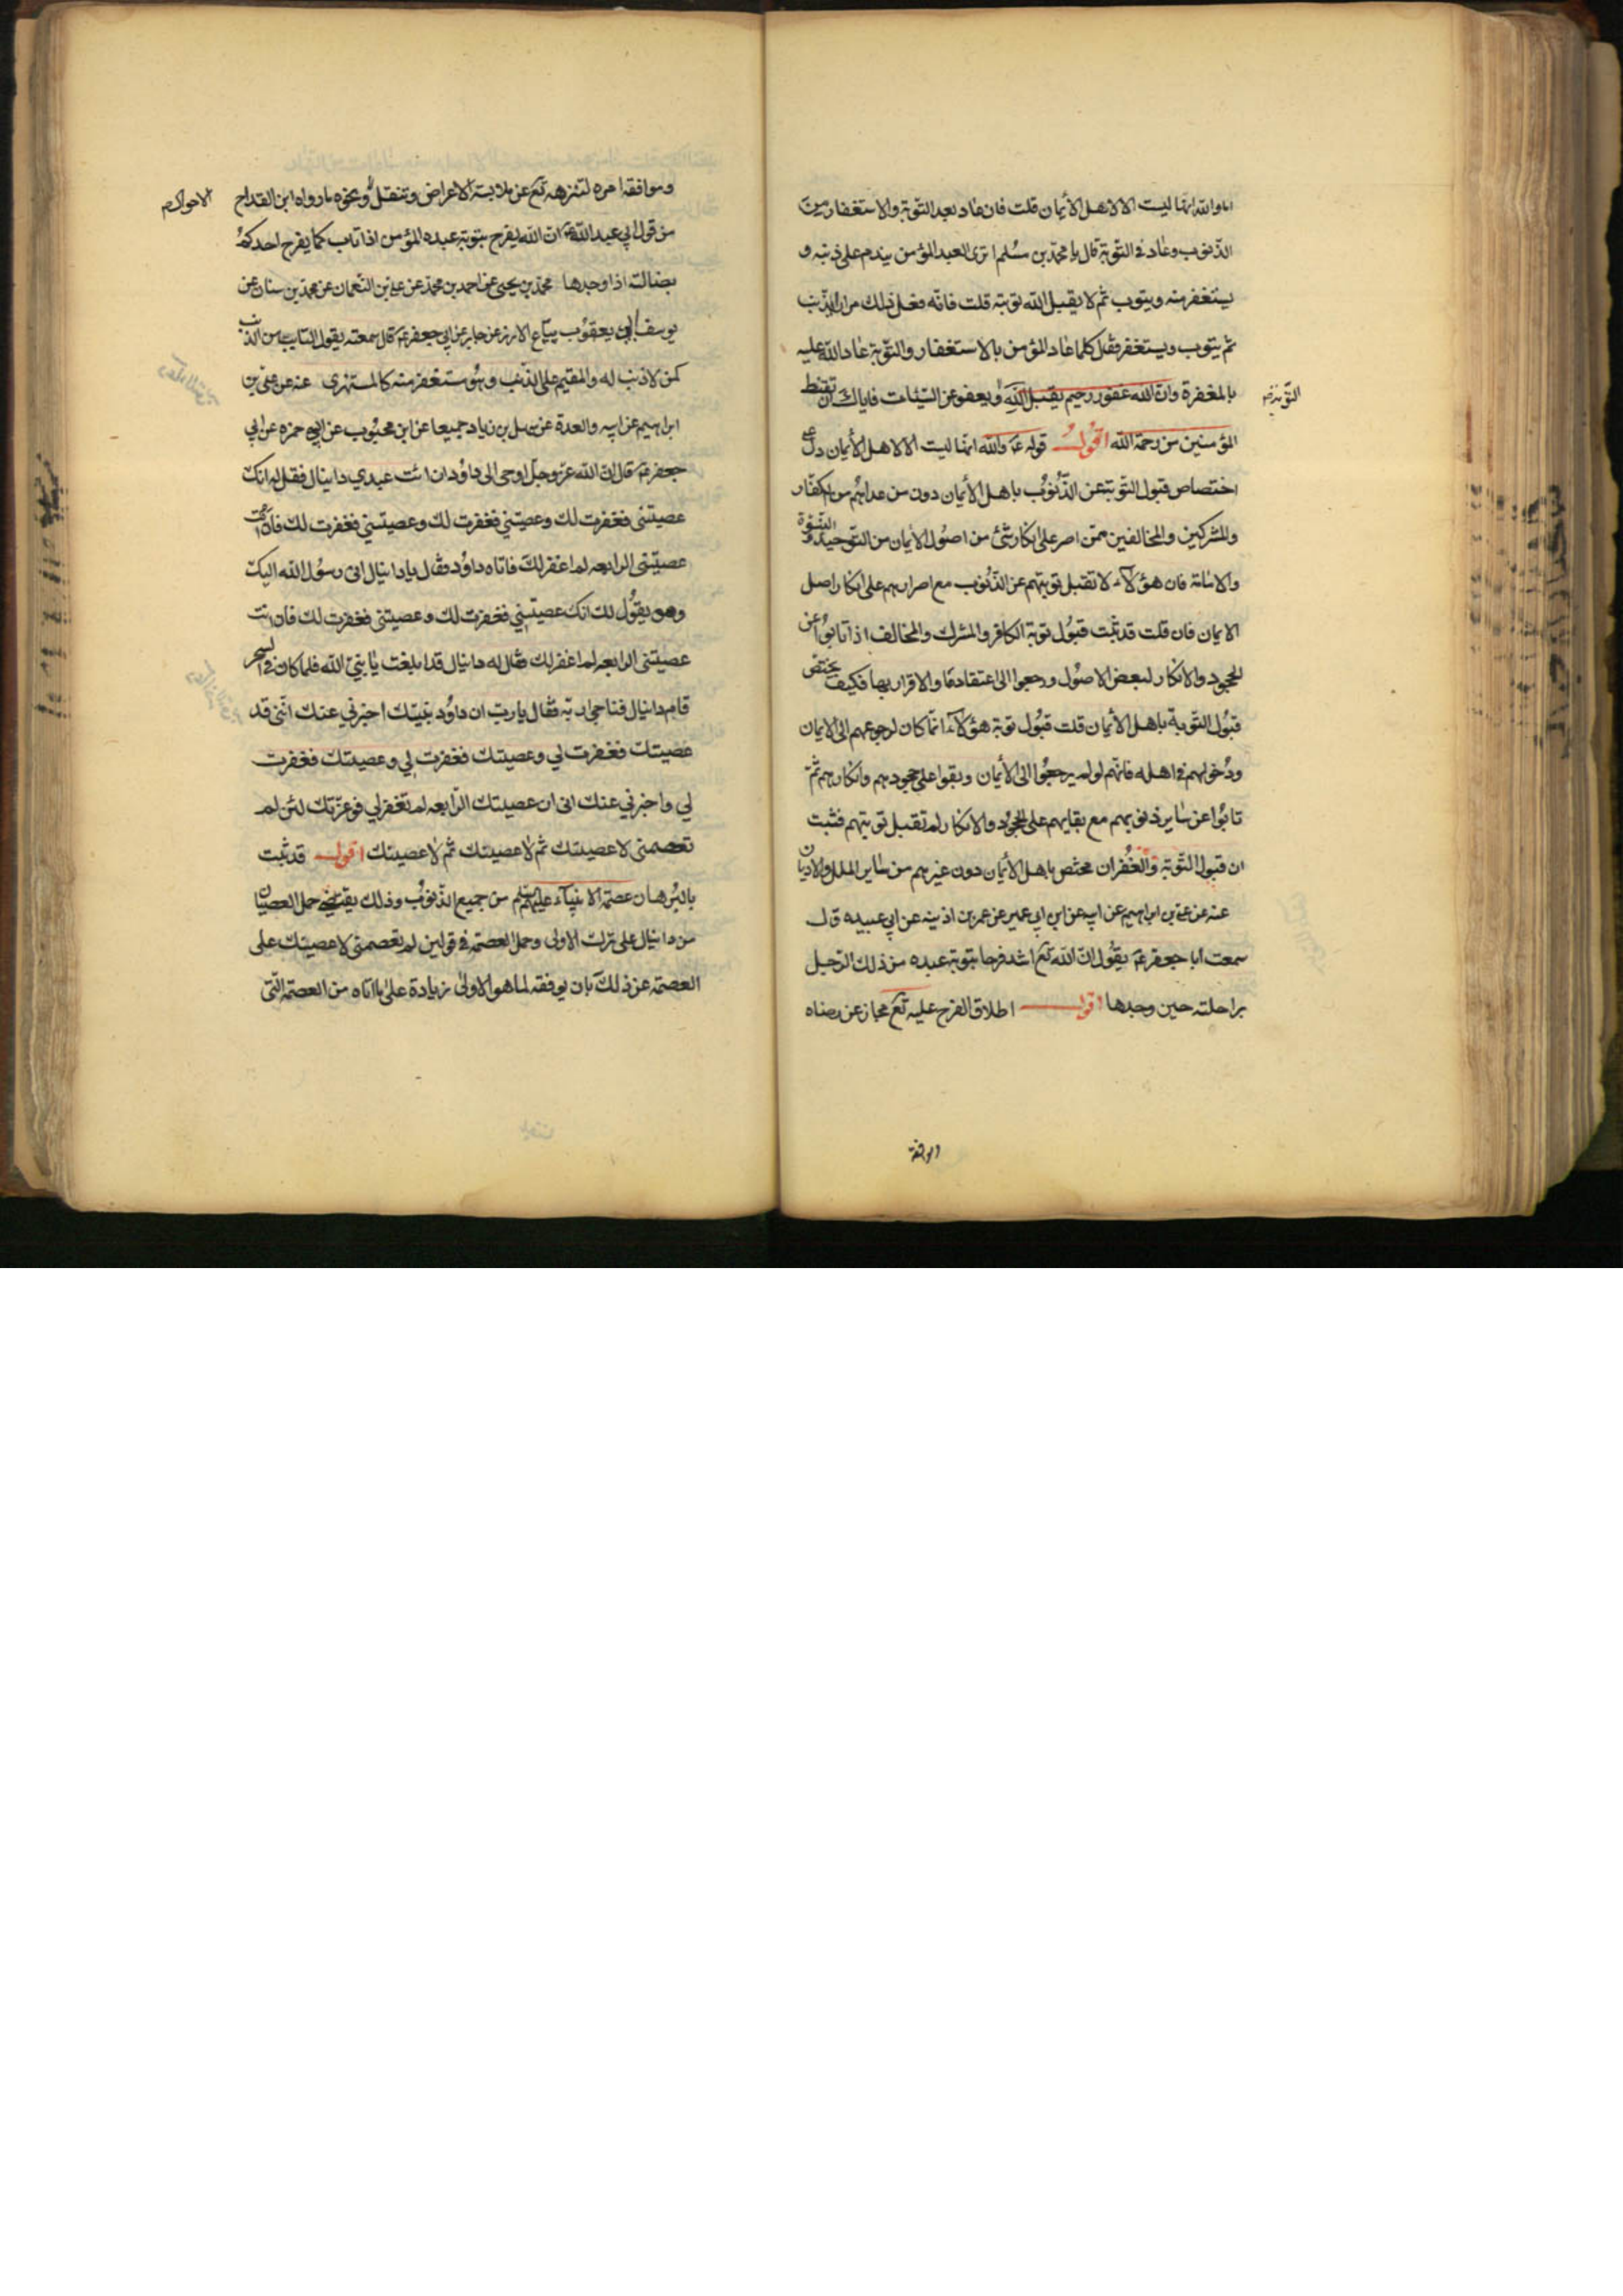 اما والله انها ليست الا لاهل الأيمان قلت فان عاد بعد التوبة والاستغفار من
الذنوب وعاد في التوبة قال يا محمد بن مسلم اترى العبد المؤمن يندم على ذنبه و
يستغفر منه ويتوب ثم لا يقبل الله توبته قلت فانه فعل ذلك مرارا يذنب
ثم يتوب ويستغفر فقال كلما عاد المؤمن بالاستغفار والتوبة عاد الله عليه
بالمغفرة وان الله غفور رحيم يقبل ويعفو عن السيئات فاياك ان تقنط
التوبة
المؤمنين من رحمة الله اقول قوله ع والله انها ليست الا لاهل الأيمان دل على
اختصاص قبول التوبة عن الذنوب باهل الأيمان دون من عداهم من الكفار
والمشركين والمخالفين ممن اصر على انكار شئ من اصول الأيمان من التوحيد والنبوة
والامامة فان هؤلاء لا تقبل توبتهم عن الذنوب مع اصرارهم على انكار اصل
الايمان فان قلت قد ثبت قبول توبة الكافر والمشرك والمخالف اذا تابوا عن
الجحود والانكار لبعض الاصول ورجعوا الى اعتقادها والاقرار بها فكيف يختص
قبول التوبة باهل الأيمان قلت قبول توبة هؤلاء انما كان لرجوعهم الى الايمان
ودخولهم في اهله فانهم لو لم يرجعوا الى الأيمان وبقوا على جحودهم وانكارهم ثم
تابوا عن ساير ذنوبهم مع بقايهم على الجحود والانكار لم تقبل توبتهم فثبت
ان قبول التوبة والغفران مختص باهل الأيمان دون غيرهم من ساير الملل والاديان
عنه عن علي بن ابراهيم عن ابيه عن ابن ابي عمير عن عمر بن اذينه عن ابي عبيده قال
سمعت ابا جعفر ع يقول ان الله تع اشد فرحا بتوبة عبده من ذلك الرجل
براحلته حين وجدها اقول اطلاق الفرح عليه تع مجاز عن رضاه
وموافقة
وموافقة امره لتنزهه تع عن ملابسة الاعراض وتنقل ونحوه ما رواه ابن القداح
الاحوال
من قول ابي عبد الله ع ان الله يفرح بتوبة عبده المؤمن اذا تاب كما يفرح احدكم
بضالته اذا وجدها محمد بن يحيى عن احمد بن محمد عن علي بن النعمان عن محمد بن سنان عن
يوسف ابي يعقوب بياع الارز عن جابر عن ابي جعفر ع قال سمعته يقول التايب من الذنب
كمن لا ذنب له والمقيم على الذنب وهو مستغفر منه كالمستهزى عنه عن علي بن
ابراهيم عن ابيه والعدة عن سهل بن زياد جميعا عن ابن محبوب عن ابي حمزه عن ابي
جعفر ع قال ان الله عز وجل اوحى الى داؤد ان ائت عبدي دانيال فقل له انك
عصيتني فغفرت لك وعصيتني فغفرت لك وعصيتني فغفرت لك فان انت
عصيتني الرابعه لم اغفر لك فاتاه داؤد فقال يا دانيال اني رسول الله اليك
وهو يقول لك انك عصيتني فغفرت لك وعصيتني فغفرت لك فان انت
عصيتني الرابعه لم اغفر لك فقال له دانيال قد ابلغت يا نبي الله فلما كان في السحر
قام دانيال فناجى ربه فقال يا رب ان داؤد نبيك اخبرني عنك انني قد
عصيتك فغفرت لي وعصيتك فغفرت لي وعصيتك فغفرت
لي واخبرني عنك اني ان عصيتك الرابعه لم تغفر لي فوعزتك لئن لم
تعصمني لاعصينك ثم لاعصينك ثم لاعصينك اقول قد ثبت
بالبرهان عصمة الانبياء عليهم السلم من جميع الذنوب وذلك يقتضي حمل العصيان
من دانيال على ترك الاولى وحمل العصمة في قوله لئن لم تعصمني لاعصينك على
العصمة عن ذلك بان يوفقه لما هو الاولى زيادة على ما اتاه من العصمة التي